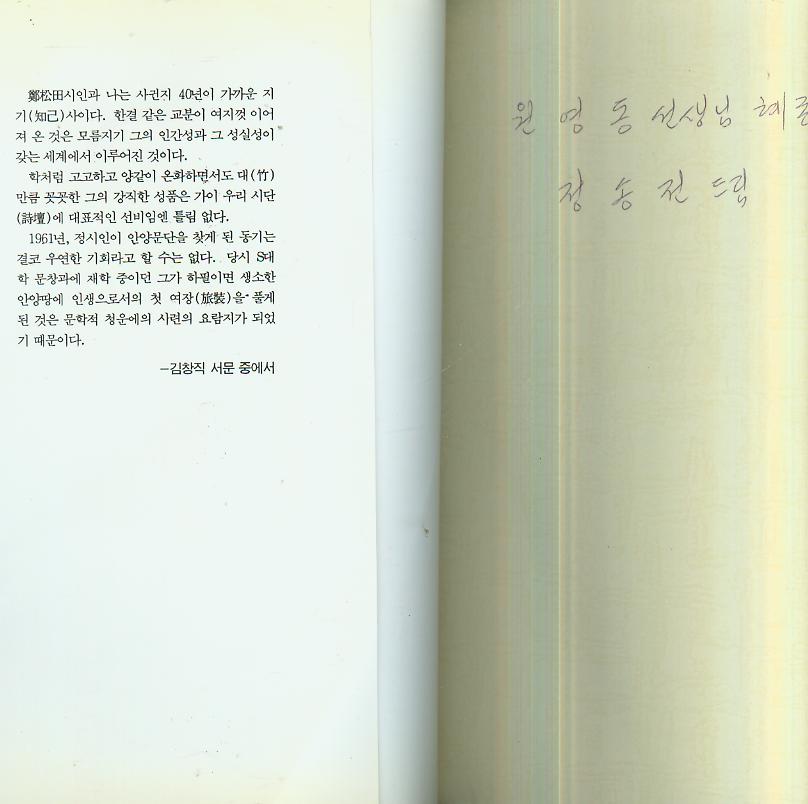 鄭松田시인과 나는 사귄지 40년이 가까운 지
기(知己)사이다. 한결 같은 교분이 여지껏 이어
져 온 것은 모름지기 그의 인간성과 그 성실성이
갖는 세계에서 이루어진 것이다.
학처럼 고고하고 양같이 온화하면서도 대(竹)
만큼 꼿꼿한 그의 강직한 성품은 가이 우리 시단
(詩壇)에 대표적인 선비임엔 틀림 없다.
1961년, 정시인이 안양문단을 찾게 된 동기는
결코 우연한 기회라고 할 수는 없다. 당시 S대
학 문창과에 재학 중이던 그가 하필이면 생소한
안양땅에 인생으로서의 첫 여장(旅裝)을 풀게
된 것은 문학적 청운에의 시련의 요람지가 되었
기 때문이다.
–김창직 서문 중에서
원영동 선생님 혜존
정송전 드림